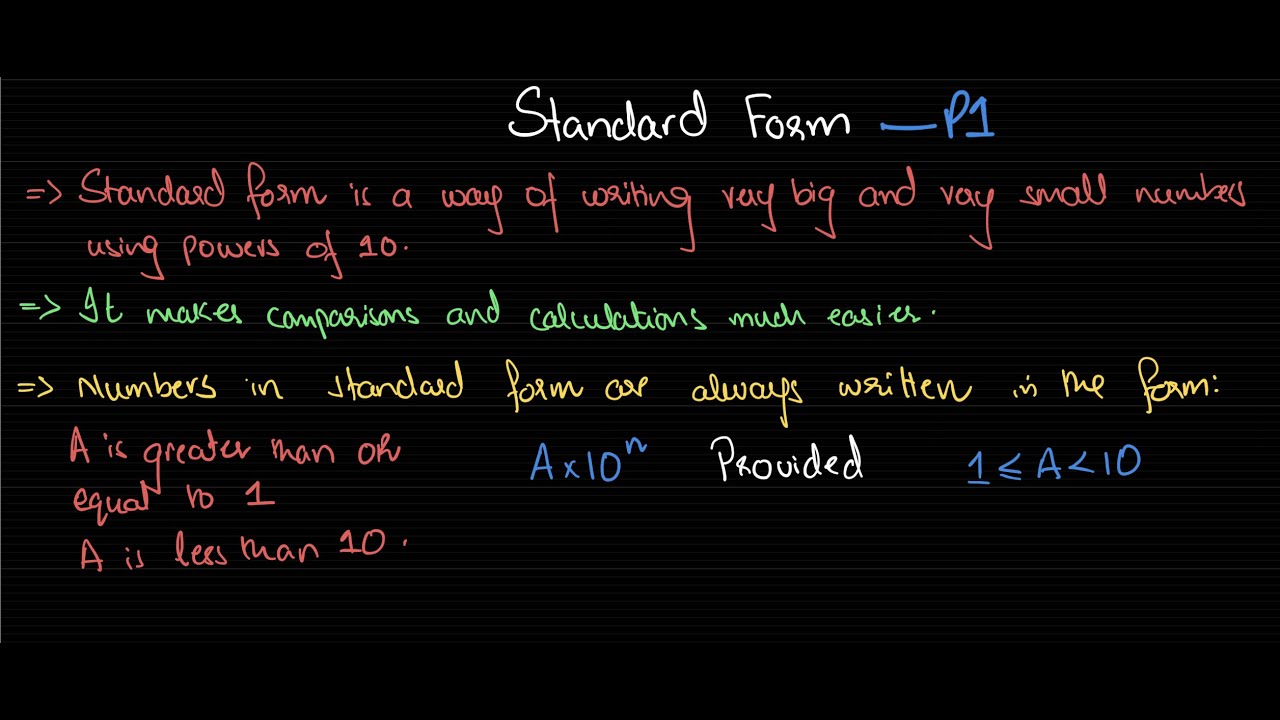 Standard Form — P1
=> Standard form is a way of writing very big and very small numbers
using powers of 10.
=> It makes comparisons and calculations much easier.
=> Numbers in standard form are always written in the form:
A is greater than or
equal to 1
A is less than 10.
A x 10ⁿ Provided 1 ≤ A < 10